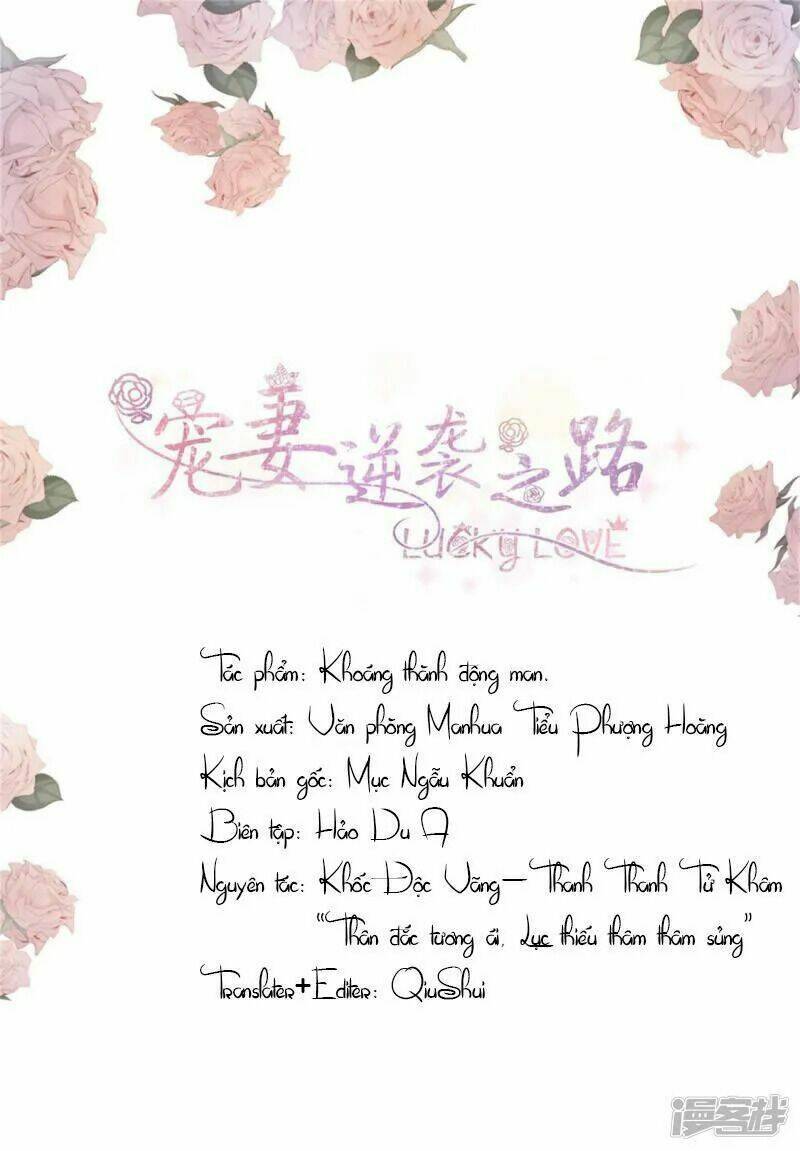 宠妻逆袭之路
LUCKY LOVE
Tác phẩm: Khoáng thành động man.
Sản xuất: Văn phòng Manhua Tiểu Phượng Hoàng
Kịch bản gốc: Mục Ngẫu Khuẩn
Biên tập: Hảo Du A
Nguyên tác: Khốc Độc Vãng—Thanh Thanh Tử Khâm
“Thân đắc tương ái, Lục thiếu thâm thâm sủng”
Translater+Editer: QiuShui
漫客栈